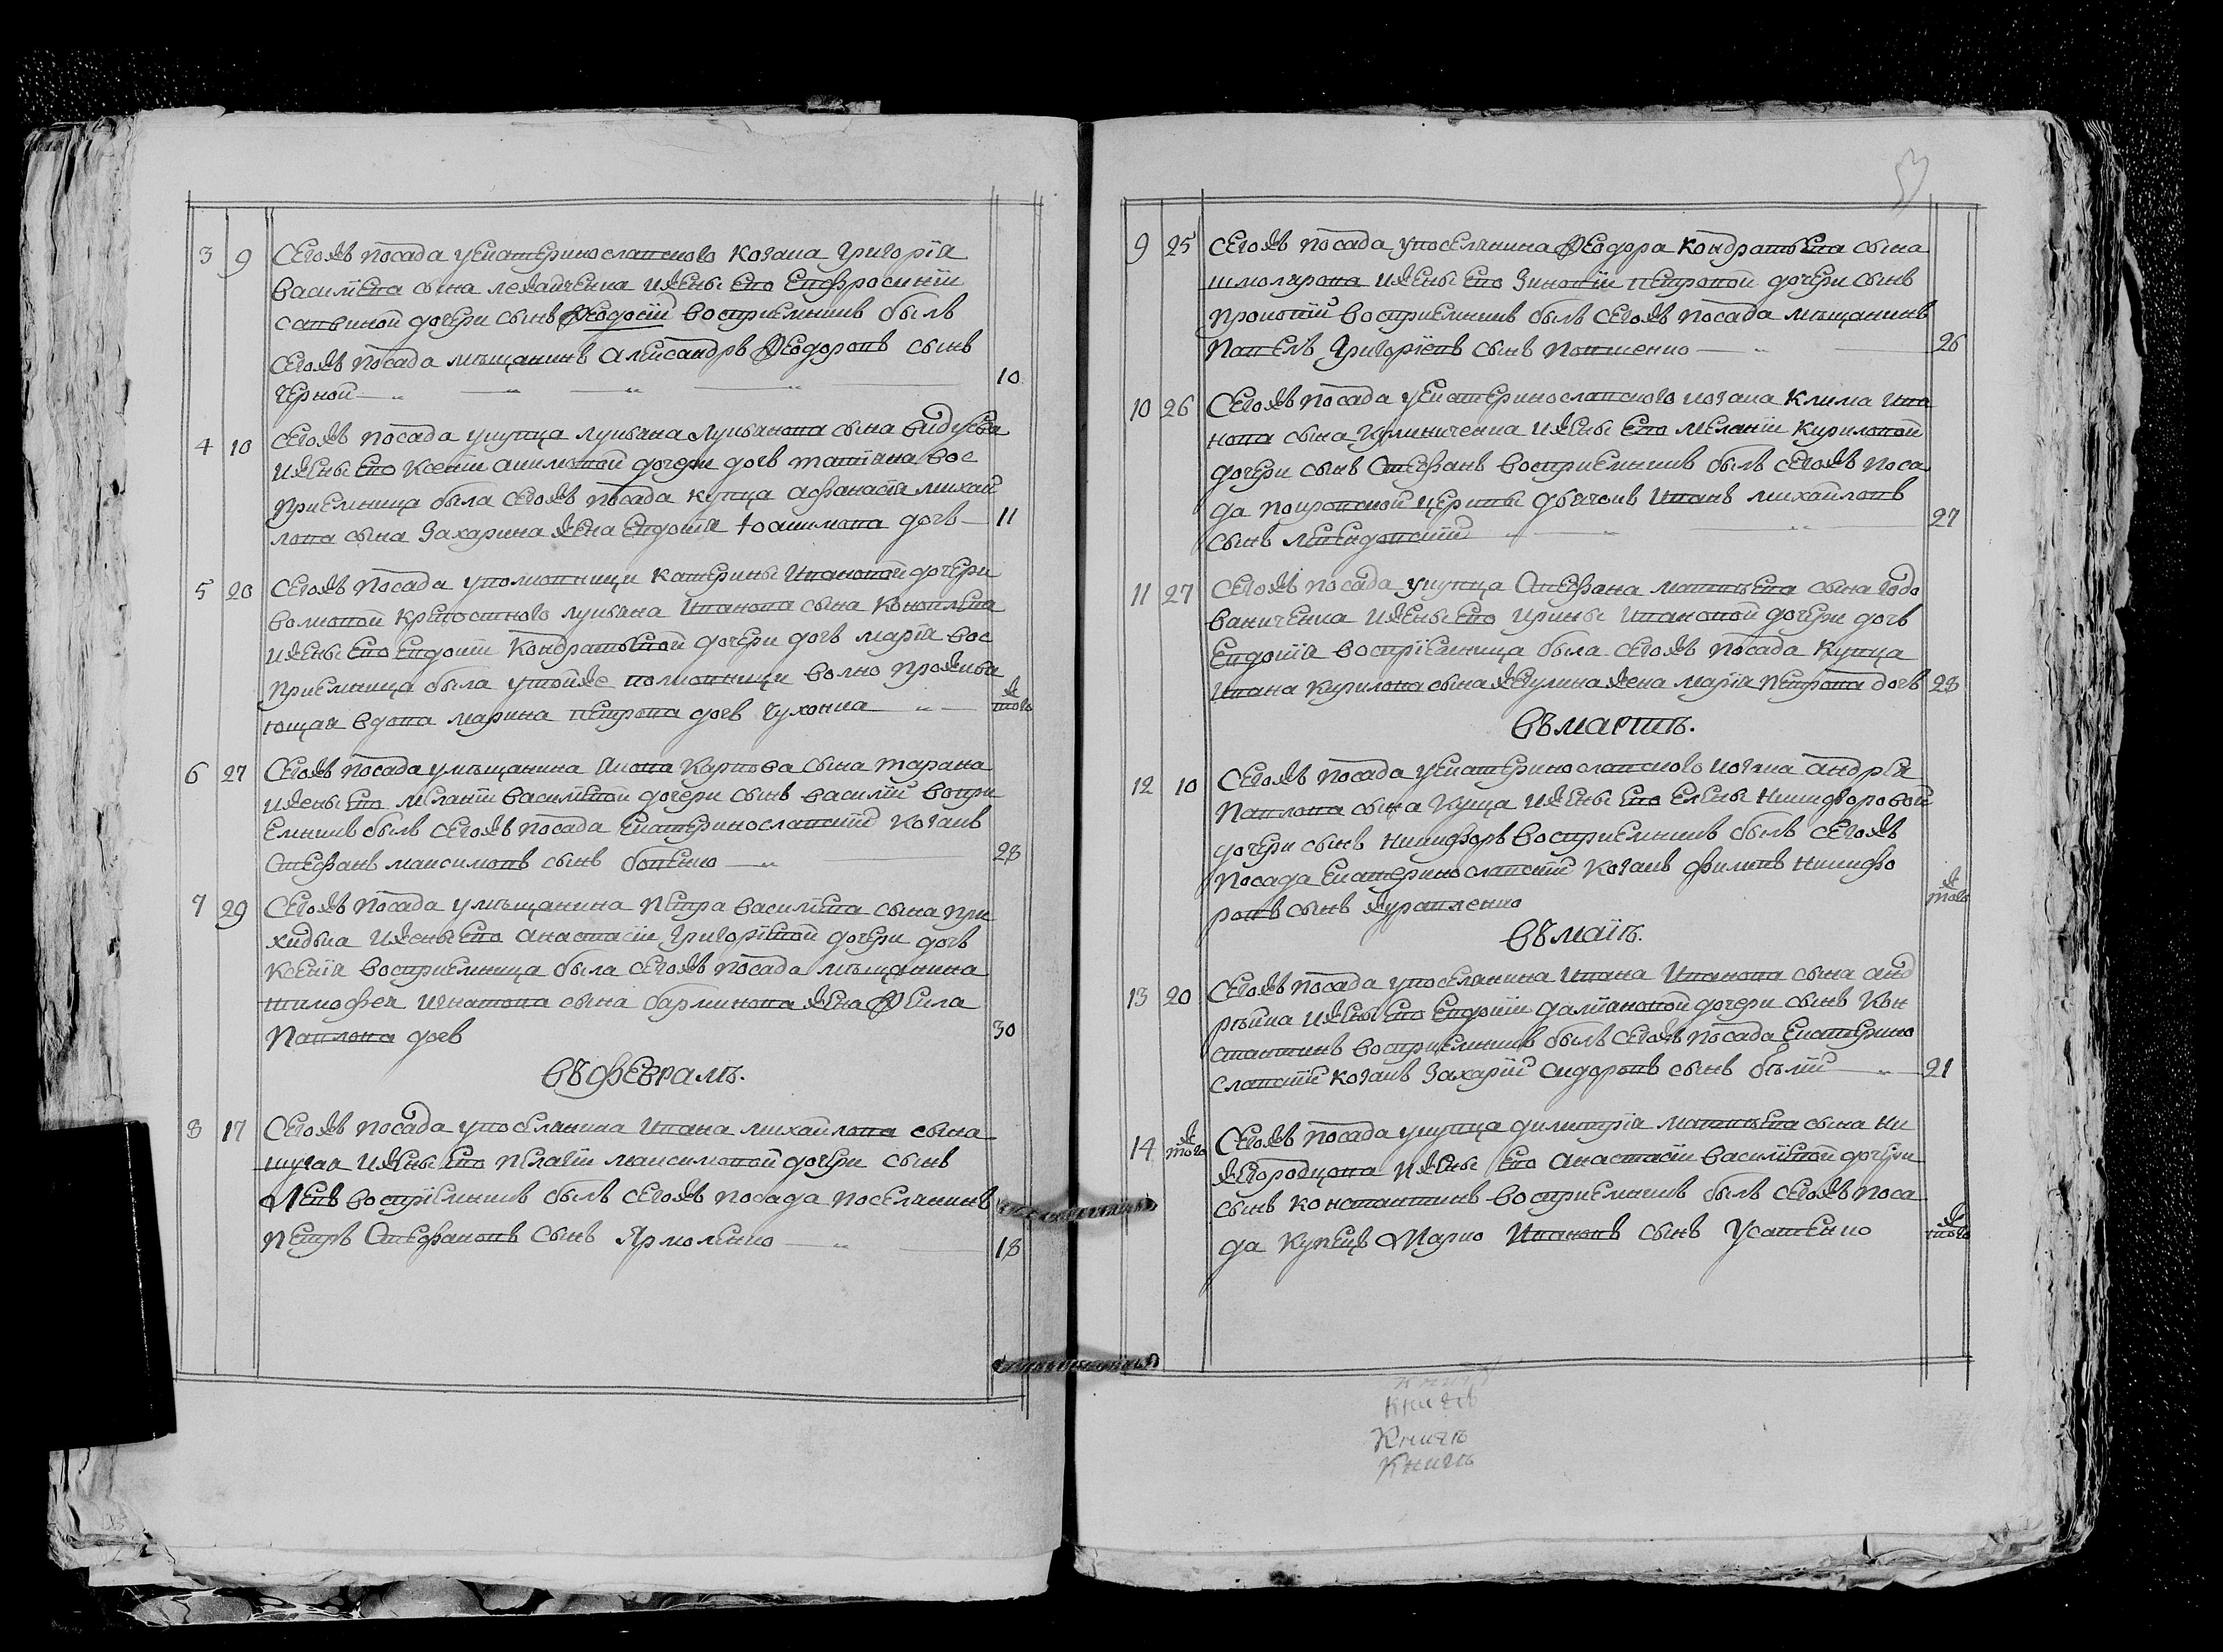 3 9 Сегожъ посада уекатеринославского козака Григорія
василіева сына лежайченка ижены его евфросиніи
саввиной дочери сынъ Феодосій восприемникъ былъ
сегожъ посада мѣщанинъ Александръ Феодоровъ сынъ
Черной 10
4 10 Сегожъ посада укупца лукьяна лукьянова сына
ижены его Ксеніи акимовой дочери дочь татіана вос
приемница была сегожъ посада купца афанасія михай
лова сына Захарина жена евдокія іоакимова дочь 11
5 20 Сегожъ посада уполковници катерины Ивановой дочери
волковой крепостного лукьяна Иванова сына Коноплева
ижены его евдокіи Кондратьевой дочери дочь марія вос
приемница была утойже полковници волно прожива
ющая вдова марина петрова дочь Чухонка тогож
6 27 Сегожъ посада умѣщанина Акова Карпова сына тарана
ижены его меланіи василіевой дочери сынъ василій вопри
емникъ былъ сегожъ посада екатеринославскій козакъ
Стефанъ максимовъ сынъ бовенко 28
7 29 Сегожъ посада умѣщанина Петра василіева сына при
ходька ижены его анастасіи григоріевой дочери дочь
Ксенія восприемница была сегожъ посада мѣщанина
тимофея игнатова сына бармикова жена Фекла
Павлова дочь 30
въ февралѣ.
8 17 Сегожъ посада упоселянина Ивана михайлова сына
шугая ижены его пелагіи максимовой дочери сынъ
Левъ воспріемникъ былъ сегожъ посада поселянинъ
петръ Стефановъ сынъ Ярмоленко 18
9 25 Сегожъ посада упоселянина Феодора кондратьева сына
шмоларова ижены его Зиновіи петровой дочери сынъ
прокопій восприемникъ былъ сегожъ посада мѣщанинъ
Павелъ Григоріевъ сынъ Повшенко 26
10 26 Сегожъ посада уекатеринославского козака Клима Ива
нова сына Климиченка ижены его меланіи Кириловой
дочери сынъ Стефанъ восприемникъ былъ сегожъ поса
да покровской церквы дьячокъ Иванъ михайловъ
сынъ 27
11 27 Сегожъ посада укупца Стефана матвѣева сына годо
ваниченка ижены его ирины Ивановой дочери дочь
Евдокія воспріемница была сегожъ посада Купца
Ивана Кирилова сына жекулина жена марія петрова дочь 28
въ мартѣ.
12 10 Сегожъ посада уекатеринославского козака андрея
Павлова сына Куца ижены его елены никифоровой
дочери сынъ никифоръ восприемникъ былъ сегожъ
посада екатеринославскій козакъ филипъ никифо
ровъ сынъ журавленко тогож
въ маіѣ.
13 20 Сегожъ посада упоселянина Ивана Иванова сына анд
рѣйка ижены его евдокіи даміановой дочери сынъ Кон
стантинъ восприемникъ былъ сегожъ посада екатерино
славскій козакъ Захарій Сидоровъ сынъ бѣлій 21
14 тогож Сегожъ посада укупца димитрія матвѣева сына ни
жегородцова ижены его анастасіи василіевой дочери
сынъ константинъ восприемникъ былъ сегожъ поса
да Купецъ Марко Ивановъ сынъ Усатенко тогож
Книгъ
Книгъ
Книгъ